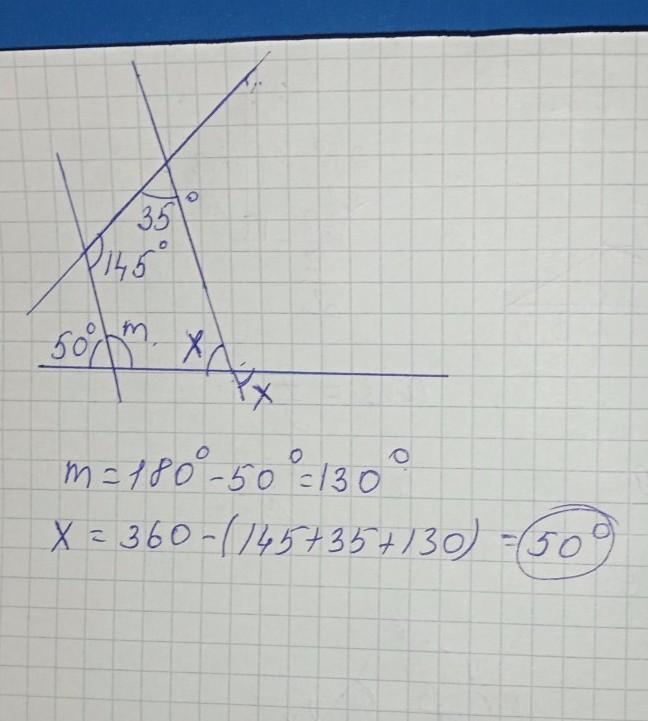 35°
145°
50° m.
X
X
m = 180° - 50° = 130°
X = 360 - (145 + 35 + 130) = 50°